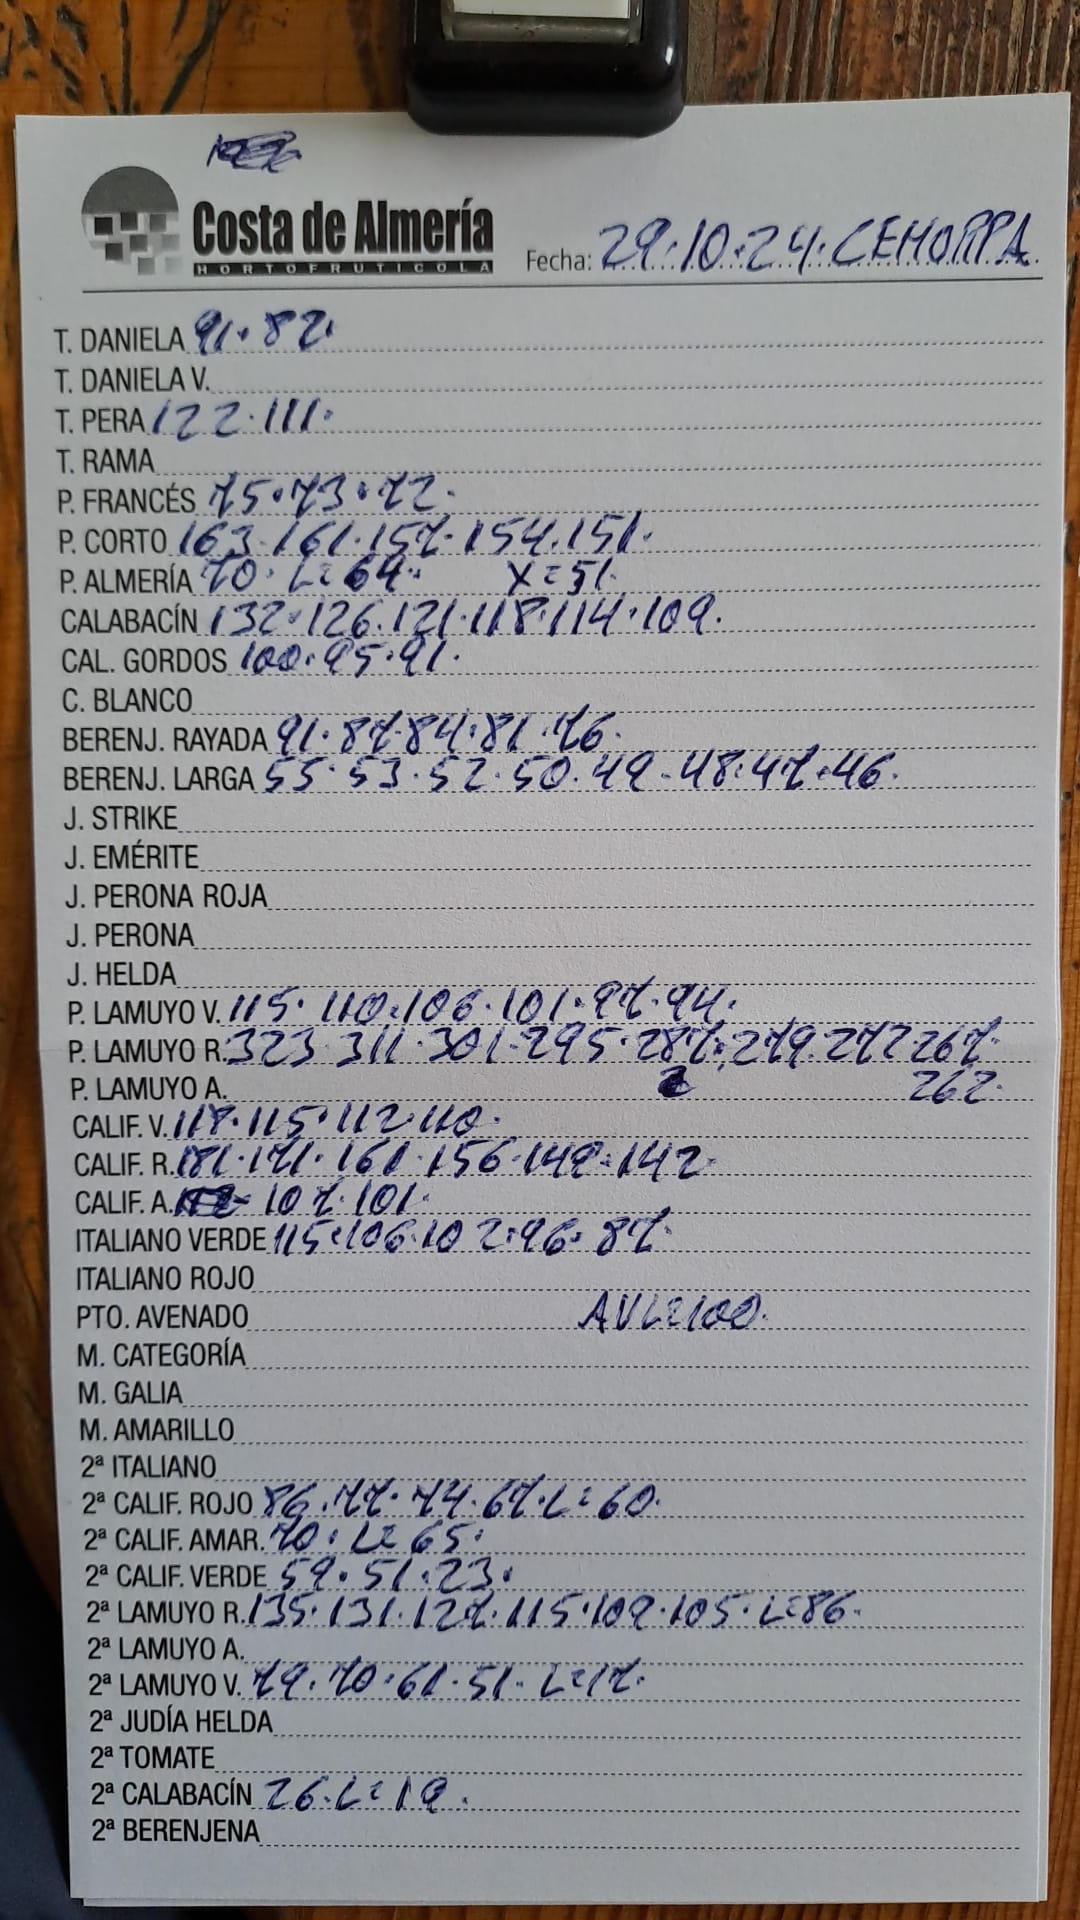 Costa de Almería
HORTOFRUTICOLA
Fecha: 29.10.24. CEHORPA
T. DANIELA 91. 82.
T. DANIELA V.
T. PERA 122. 111.
T. RAMA
P. FRANCÉS 75. 73. 72.
P. CORTO 163. 161. 157. 154. 151.
P. ALMERÍA 70. L=64. X=51.
CALABACÍN 132. 126. 121. 118. 114. 109.
CAL. GORDOS 100. 95. 91.
C. BLANCO
BERENJ. RAYADA 91. 87. 84. 81. 76.
BERENJ. LARGA 55. 53. 52. 50. 49. 48. 47. 46.
J. STRIKE
J. EMÉRITE
J. PERONA ROJA
J. PERONA
J. HELDA
P. LAMUYO V. 115. 110. 106. 101. 97. 94.
P. LAMUYO R. 323. 311. 301. 295. 287. 279. 272 267.
P. LAMUYO A. 262.
CALIF. V. 118. 115. 112. 110.
CALIF. R. 181. 171. 161. 156. 149. 142.
CALIF. A. 107. 101.
ITALIANO VERDE 115. 106. 102. 96. 87.
ITALIANO ROJO
PTO. AVENADO AVL=100.
M. CATEGORÍA
M. GALIA
M. AMARILLO
2ª ITALIANO
2ª CALIF. ROJO 86. 77. 74. 67. L=60.
2ª CALIF. AMAR. 70. L=65.
2ª CALIF. VERDE 59. 51. 23.
2ª LAMUYO R. 135. 131. 127. 115. 109. 105. L=86.
2ª LAMUYO A.
2ª LAMUYO V. 79. 70. 61. 51. L=17.
2ª JUDÍA HELDA
2ª TOMATE
2ª CALABACÍN 26. L=19.
2ª BERENJENA